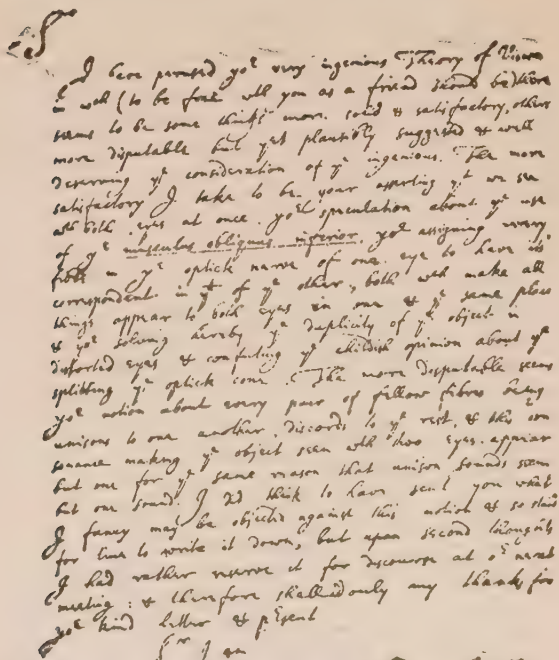 Sr
I have perused yor very ingenious Theory of Vision
in wch (to be free wth you as a friend should be) there
seems to be some things more solid & satisfactory, others
more disputable but yet plausibly suggested & well
deserving ye consideration of ye ingenious. The more
satisfactory I take to be your asserting yt we see
wth both eyes at once, yor speculation about ye use
of ye musculus obliquus inferior, yor assigning every
fibre in ye optick nerve of one eye to have its
correspondent in yt of ye other, both wch make all
things appear to both eyes in one & ye same place
& yor solving hereby ye duplicity of ye object in
distorted eyes & confuting ye childish opinion about ye
splitting ye optick cone. The more disputable seems
yor notion about every pair of fellow fibres being
unisons to one another, discords to ye rest, & this con
sonance making ye object seen wth two eyes appear
but one for ye same reason that unison sounds seem
but one sound. I did think to have sent you what
I fancy may be objected against this notion & so staid
for time to write it down, but upon second thoughts
I had rather reserve it for discourse at or next
meeting: & therefore shall add only my thanks for
yor kind letter & present
Sr I am